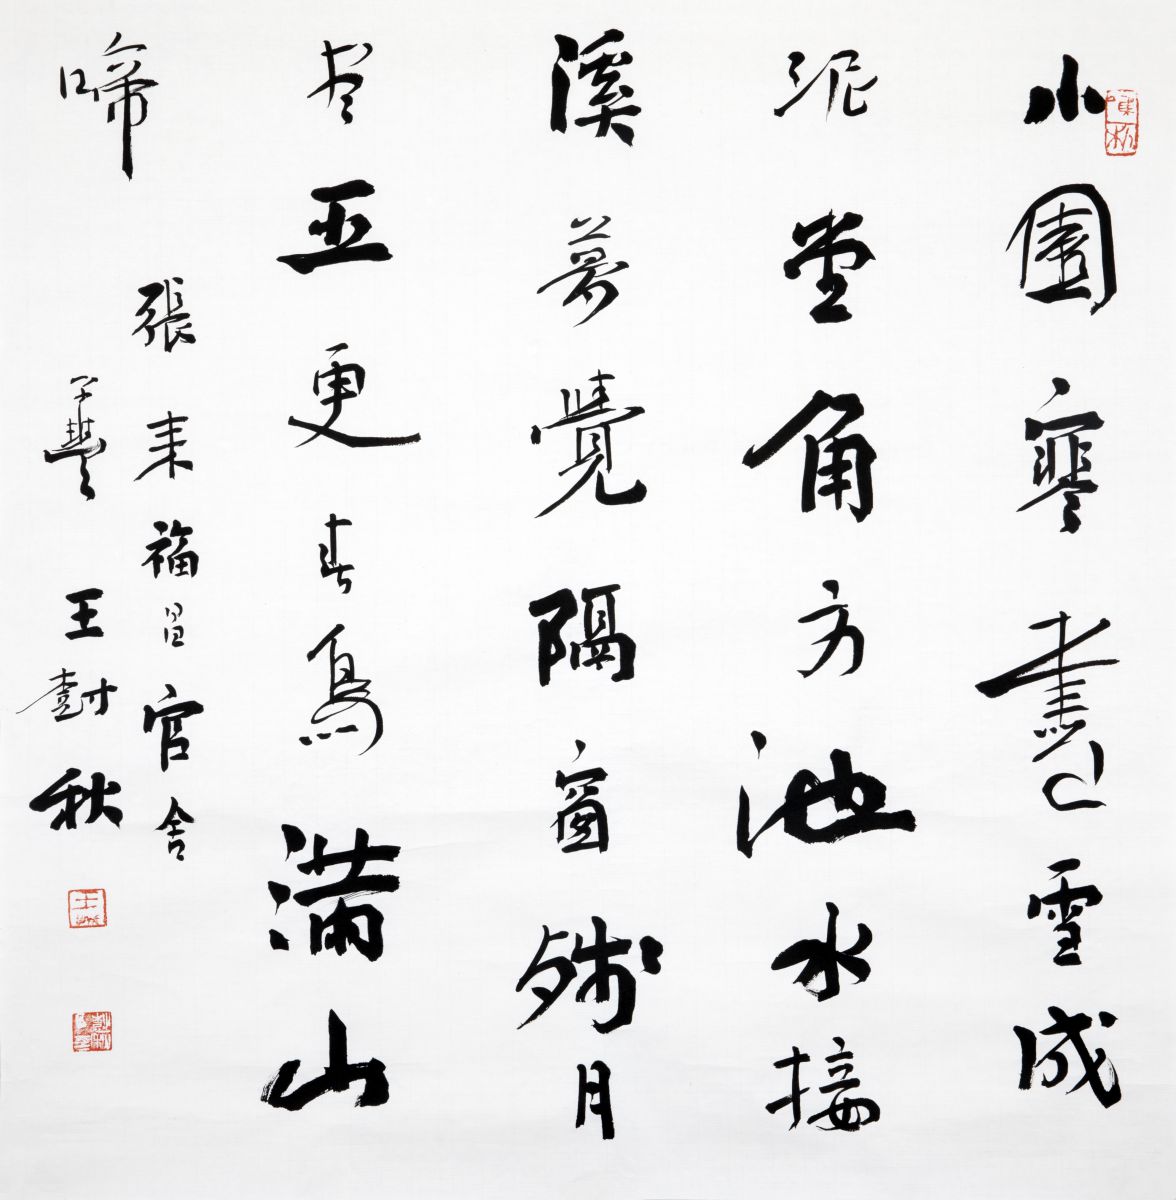 小園寒盡雪成
泥堂角方池水接
溪夢覺隔窗殘月
尽五更春鳥滿山
啼
張耒福昌官舍
王秋